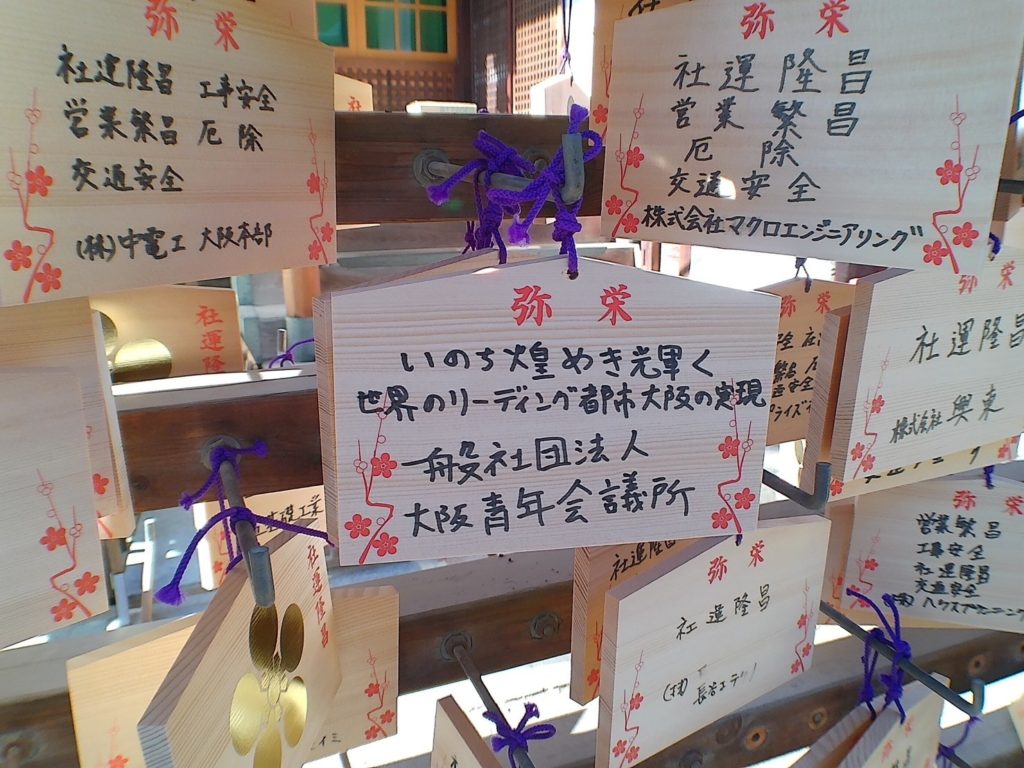 弥栄
社運隆昌 工事安全
営業繁昌 厄除
交通安全
(株)中電工 大阪本部
弥栄
社運隆昌
営業繁昌
厄除
交通安全
株式会社マクロエンジニアリング
弥栄
いのち煌めき光輝く
世界のリーディング都市大阪の実現
一般社団法人
大阪青年会議所
社運隆
弥栄
弥栄
社運隆昌
株式会社 興東
基礎工業
社運隆昌
社運隆昌
弥栄
社運隆昌
弥栄
営業繁昌
工事安全
社運隆昌
交通安全